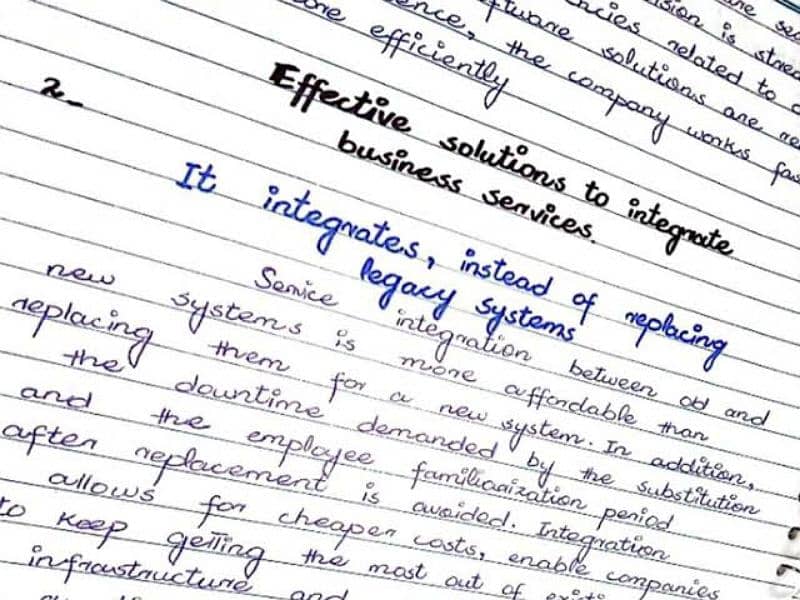 are se
ision is stre
ncies related to
ftware solutions are re
ence, the company works fas
efficiently
2_
Effective solutions to integrate
business services.
It integrates, instead of replacing
legacy systems
Service integration between old and
new systems is more affordable than
replacing them for a new system. In addition,
the downtime demanded by the substitution
and the employee familiarization period
after replacement is avoided. Integration
allows for cheaper costs, enable companies
to keep getting the most out of
infraustructure and